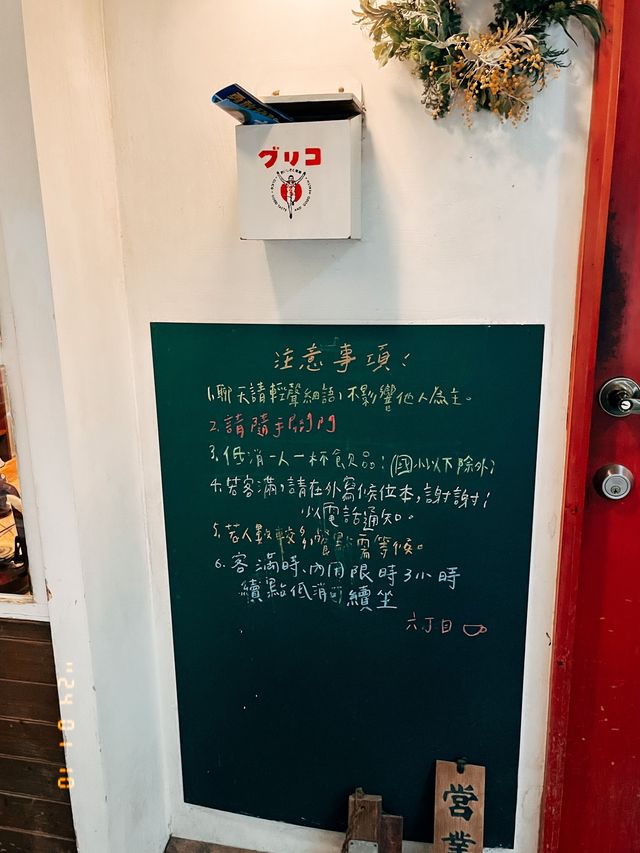 グリコ
注意事項：
1.聊天請輕聲細語，不影響他人為主。
2.請隨手關門
3.低消一人一杯飲品！(國小以下除外)
4.若客滿，請在外寫候位本，謝謝！
以電話通知。
5.若人數較多，餐點需等候。
6.客滿時、內用限時3小時
續點低消可續坐
六丁目
営業
'24 01 10